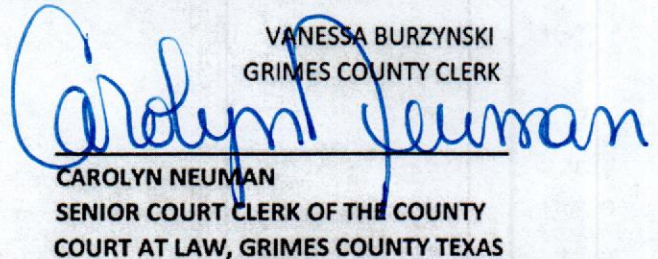 VANESSA BURZYNSKI
GRIMES COUNTY CLERK
Carolyn Neuman
CAROLYN NEUMAN
SENIOR COURT CLERK OF THE COUNTY
COURT AT LAW, GRIMES COUNTY TEXAS